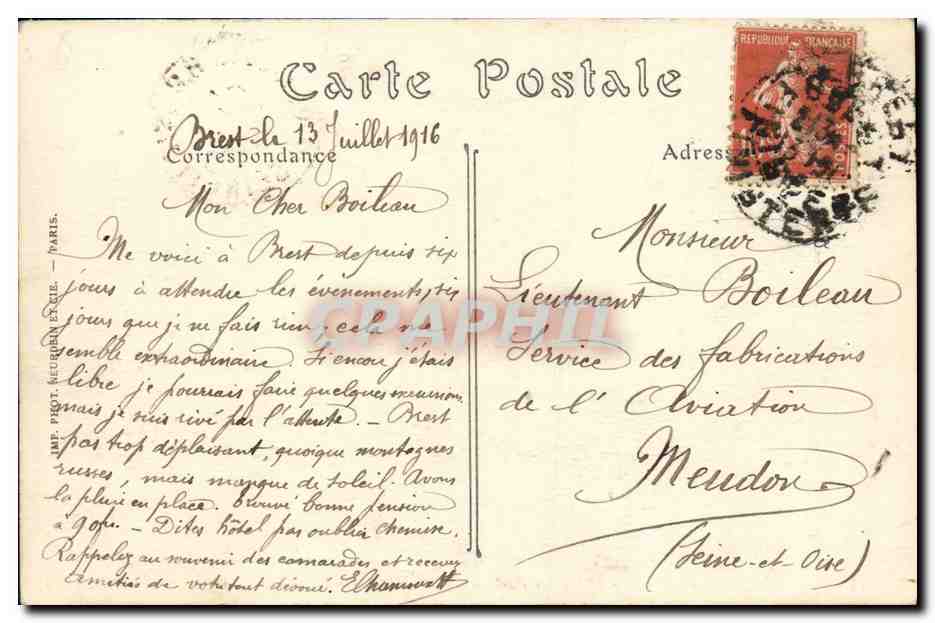 Carte Postale
Brest le 13 Juillet 1916
Correspondance
Mon Cher Boileau
Me voici à Brest depuis six
jours à attendre les évènements, six
jours que je ne fais rien, cela me
semble extraordinaire. Si encore j'étais
libre je pourrais faire quelques excursions
mais je suis rivé par l'attente. — Brest
pas trop déplaisant, quoique montagnes
russes, mais manque de soleil. Avons
la pluie en place. Trouvé bonne pension
à 90f. — Dites hôtel pas oublier chemise.
Rappelez au souvenir des camarades et recevez
amitiés de votre tout dévoué.
IMP. PHOT. NEURDEIN ET CIE. — PARIS.
REPUBLIQUE FRANÇAISE
POSTES
Adresse
Monsieur
Lieutenant Boileau
Service des fabrications
de l'Aviation
Meudon
(Seine-et-Oise)
CPAPHIL